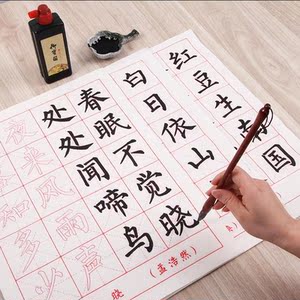 红豆生南国
白日依山
春眠不觉晓
处处闻啼鸟
夜来风雨声
多少
晓
(孟浩然)